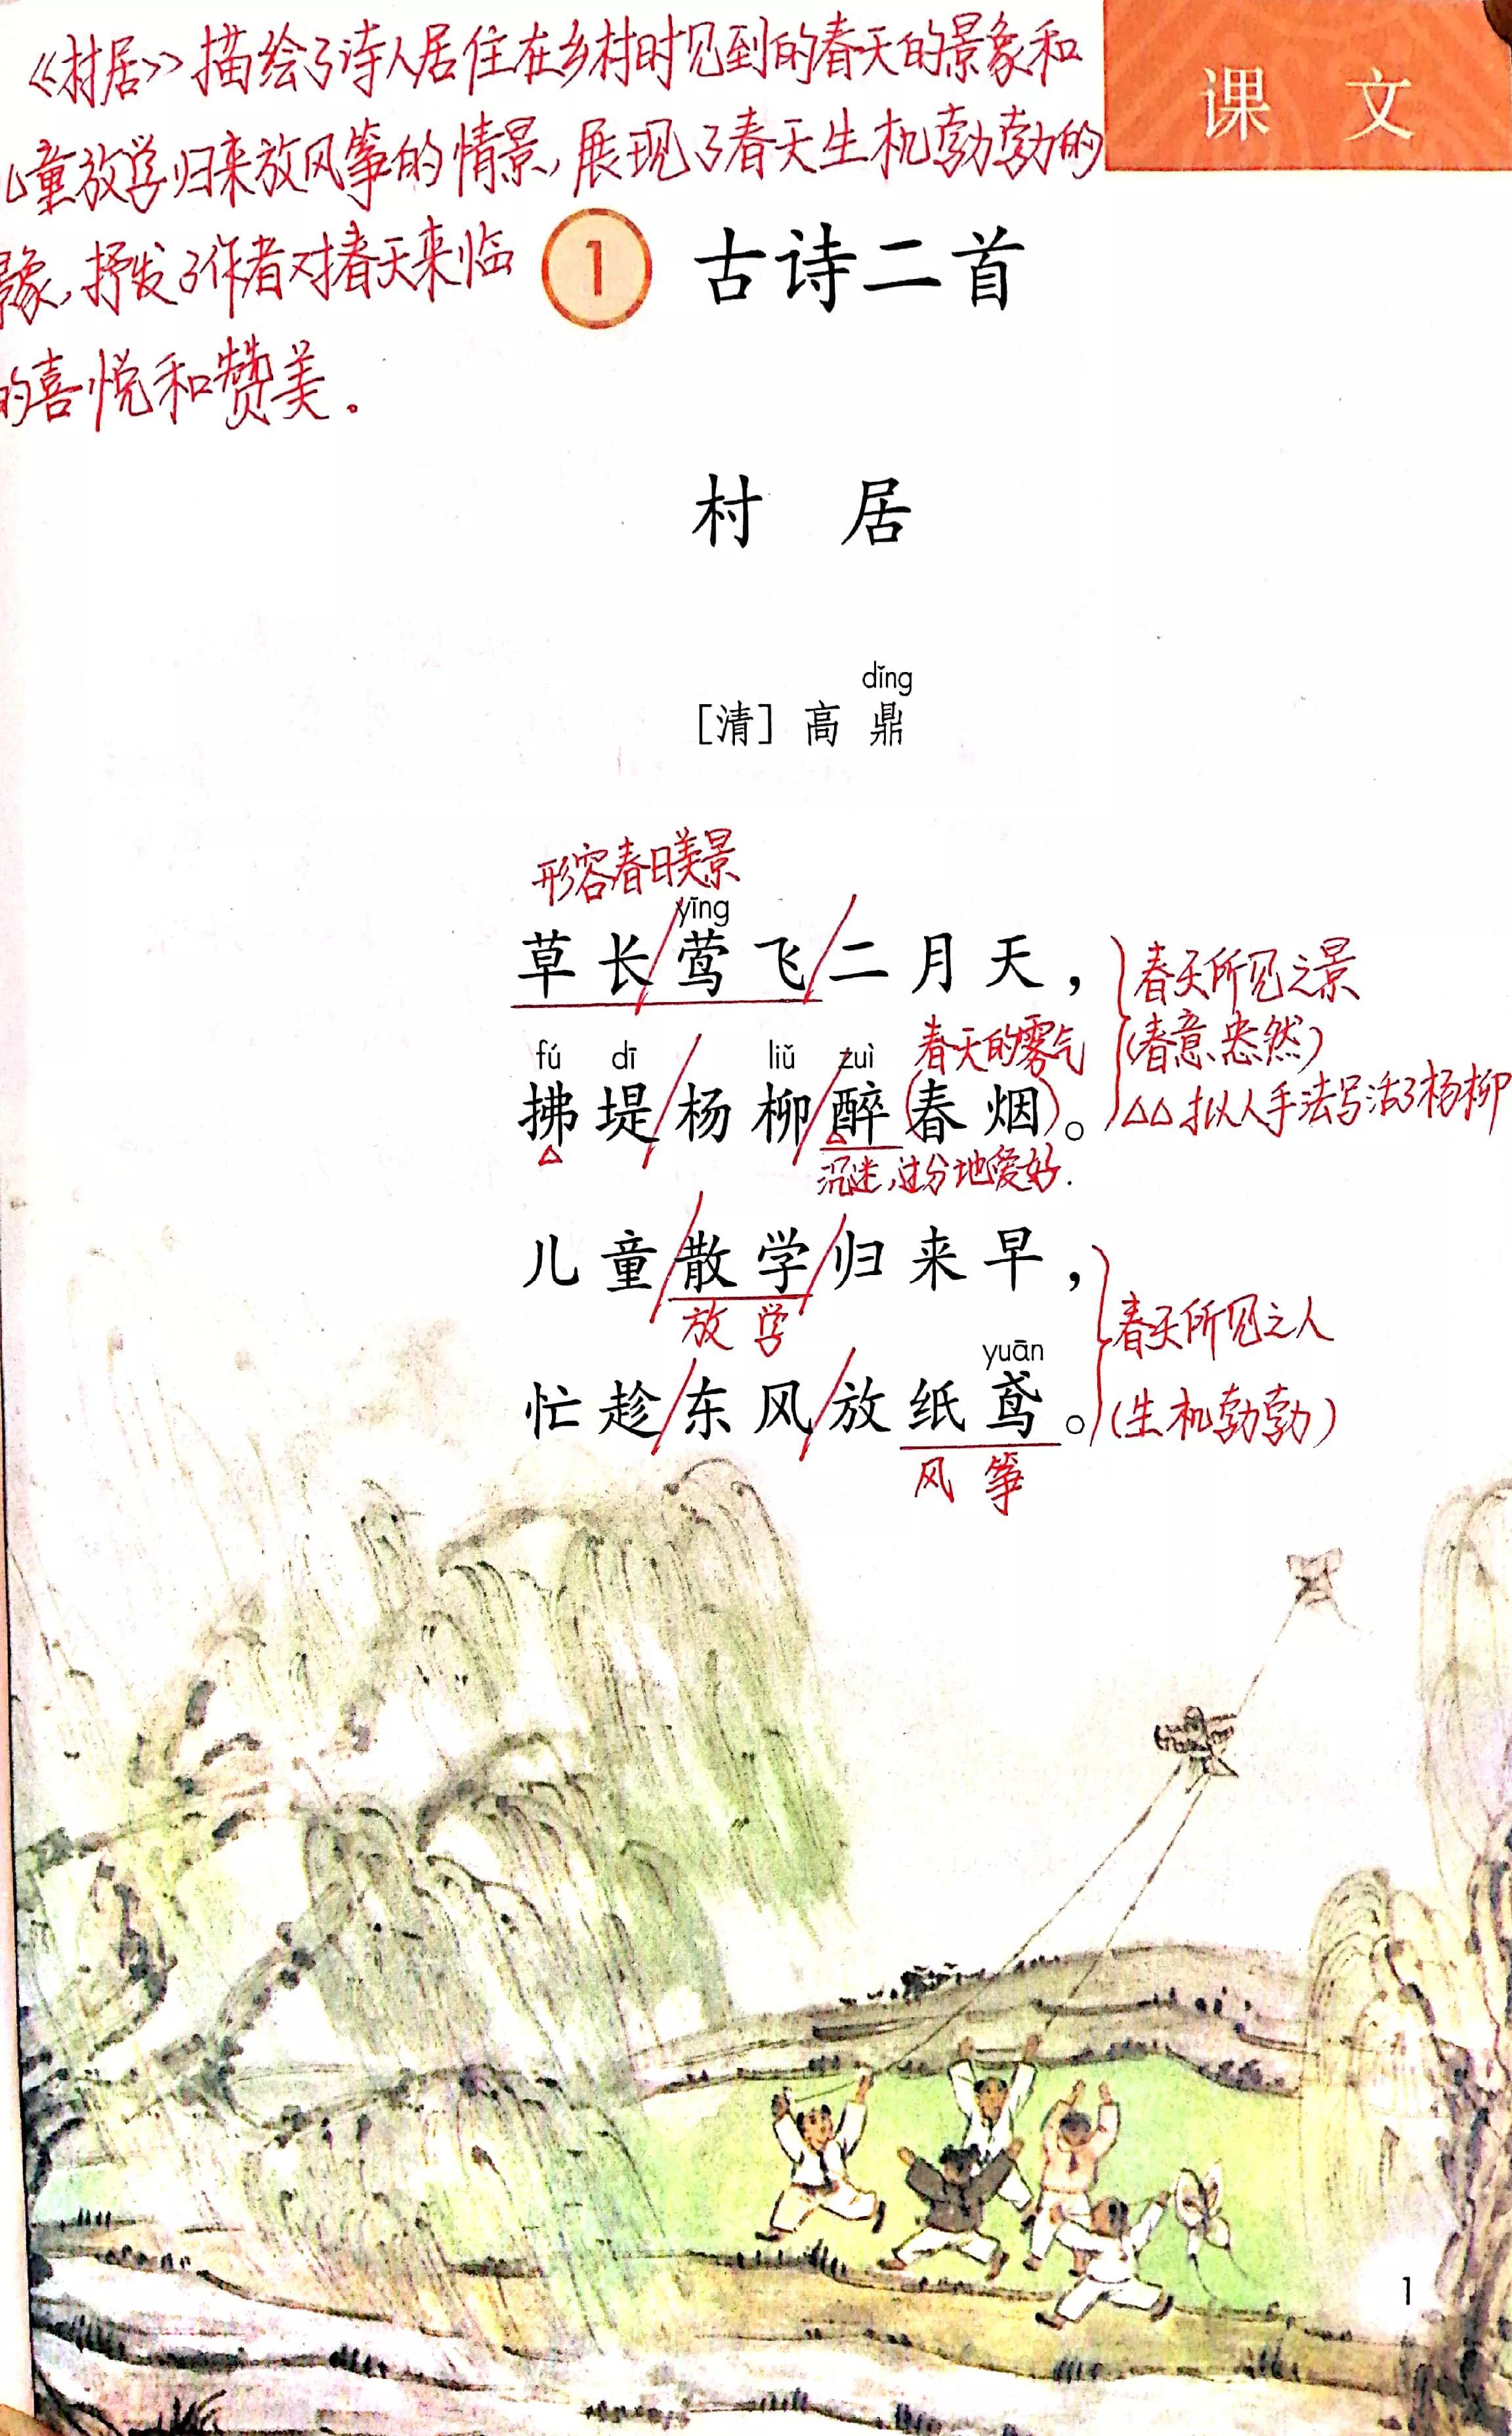 《村居》描绘了诗人居住在乡村时见到的春天的景象和
儿童放学归来放风筝的情景,展现了春天生机勃勃的
景象,抒发了作者对春天来临
的喜悦和赞美。
课 文
1 古诗二首
村 居
dǐng
[清] 高 鼎
形容春日美景
yīng
草长/莺飞/二月天,
春天所见之景
(春意盎然)
fú dī liǔ zuì
春天的雾气
拂堤/杨柳/醉(春烟)。
△△拟人手法写活了杨柳
沉迷,过分地爱好.
儿童/散学/归来早,
放 学
春天所见之人
yuān
忙趁/东风/放纸鸢。
(生机勃勃)
风 筝
1